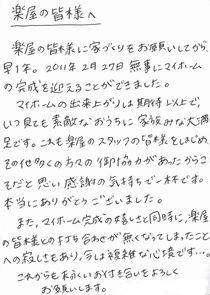 楽屋の皆様へ
楽屋の皆様に家づくりをお願いしてから、
早1年。2011年2月27日無事にマイホーム
の完成を迎えることができました。
マイホームの出来上がりは期待以上で、
いつ見ても素敵なおうちに家族みな大満
足です。これも楽屋のスタッフの皆様をはじめ、
その他多くの方々の御協力があったからこ
そだと思い感謝の気持ちで一杯です。
本当にありがとうございました。
また、マイホーム完成の嬉しさと同時に、楽屋
の皆様との打ち合わせが無くなってしまったこと
への寂しさもあり、今は複雑な心境です…。
これからも末永いお付き合いをよろしく
お願いします。